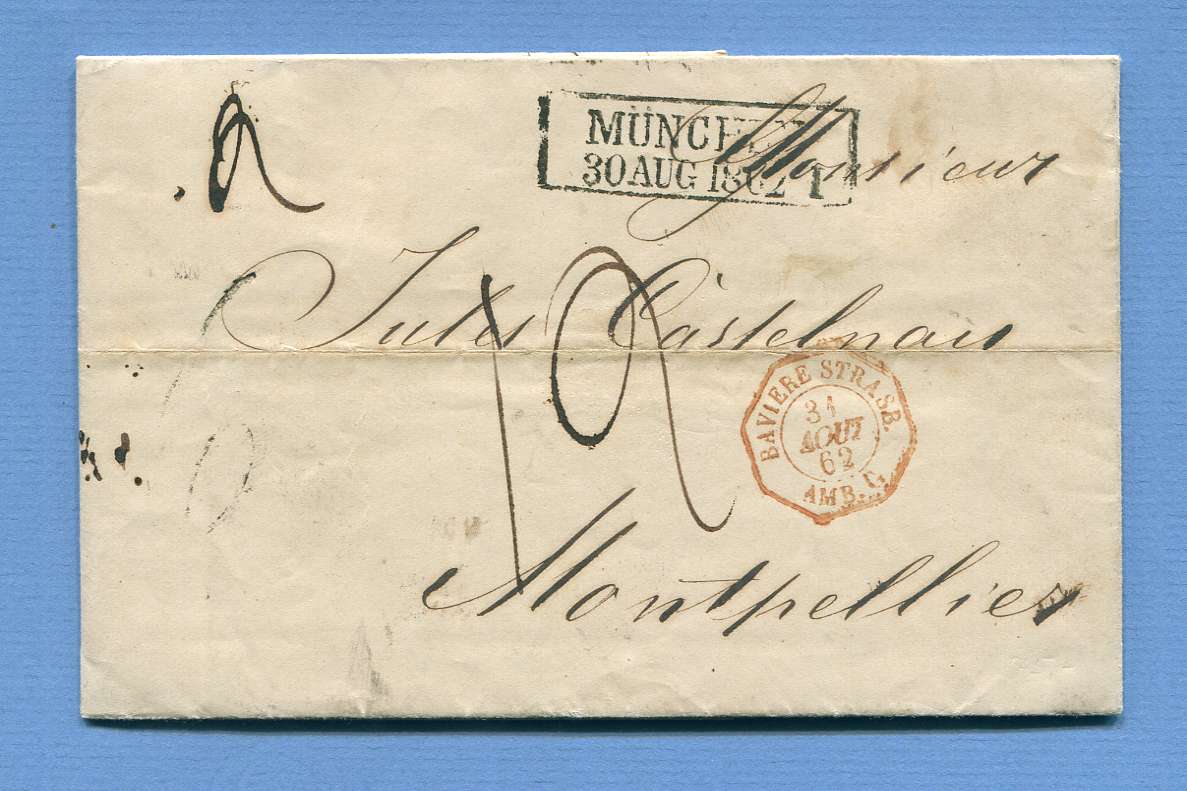 MÜNCHEN
30 AUG 1862 I
Monsieur
Jules Castelnau
12
BAVIERE STRASB.
31
AOUT
62
AMB. C.
Montpellier